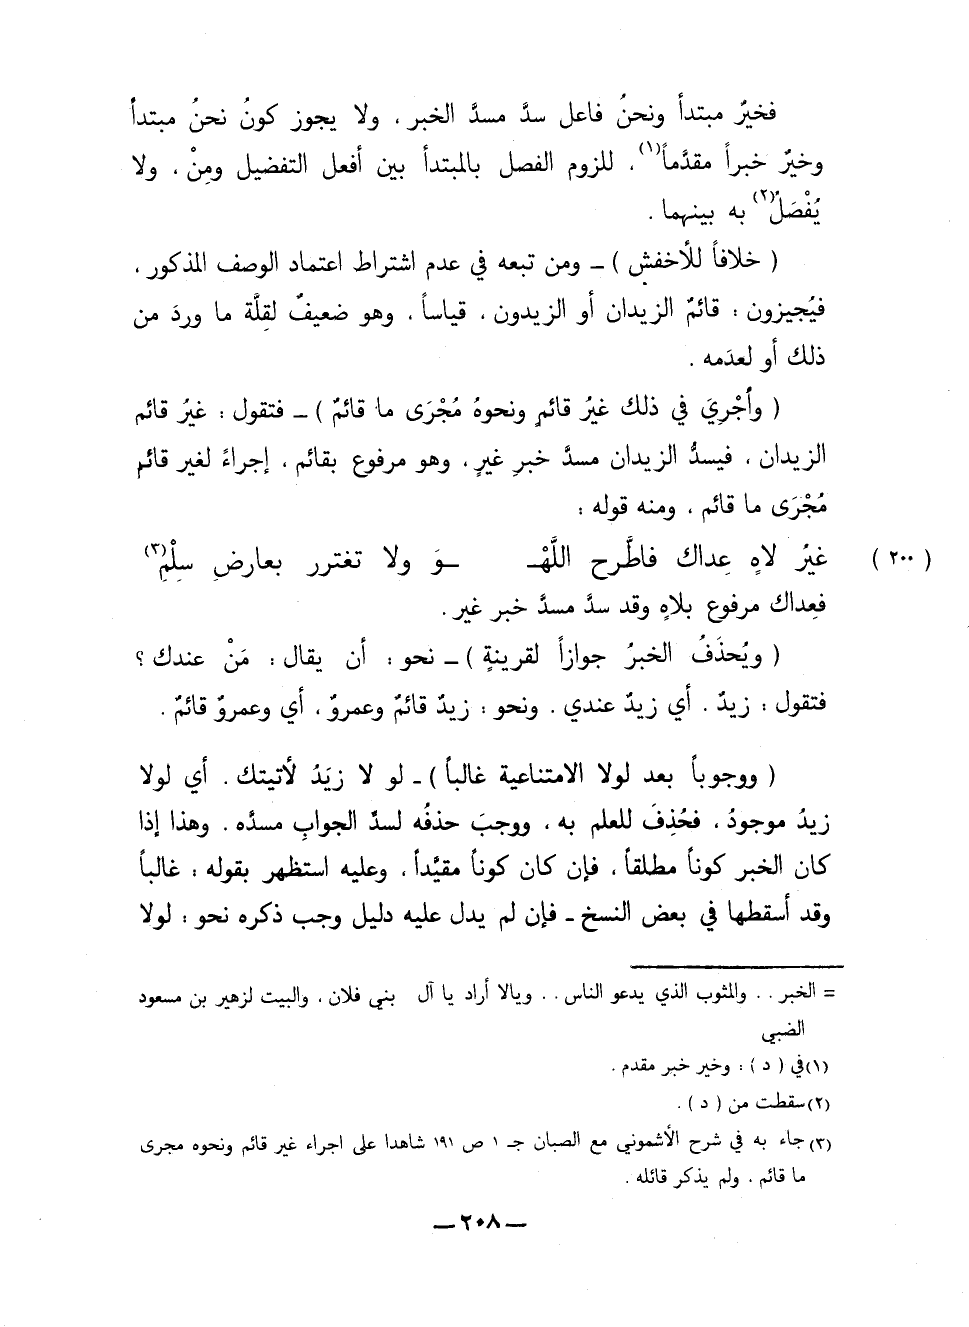 فخيرٌ مبتدأ ونحنُ فاعل سدَّ مسدَّ الخبر ، ولا يجوز كونُ نحنُ مبتدأ
وخيرٌ خبراً مقدَّماً(١) ، للزوم الفصل بالمبتدأ بين أفعل التفضيل ومِنْ ، ولا
يُفْصَلُ(٢) به بينهما .
( خلافاً للأخفش ) ــ ومن تبعه في عدم اشتراط اعتماد الوصف المذكور ،
فيُجيزون : قائمٌ الزيدان أو الزيدون ، قياساً ، وهو ضعيفٌ لقلَّة ما وردَ من
ذلك أو لعدَمه .
( وأُجْرِيَ في ذلك غيرُ قائمٍ ونحوهُ مُجْرَى ما قائمٌ ) ــ فتقول : غيرُ قائم
الزيدان ، فيسدُّ الزيدان مسدَّ خبرِ غيرٍ ، وهو مرفوع بقائم ، إجراءً لغير قائم
مُجْرَى ما قائم ، ومنه قوله :
( ٢٠٠ ) غيرُ لاهٍ عِداكَ فاطَّرح اللَّهْـ ـوَ ولا تغترر بعارضِ سِلْمِ(٣)
فعِداك مرفوع بلاهٍ وقد سدَّ مسدَّ خبر غير .
( ويُحذَفُ الخبرُ جوازاً لقرينةٍ ) ــ نحو : أن يقال : مَنْ عندك ؟
فتقول : زيدٌ . أي زيدٌ عندي . ونحو : زيدٌ قائمٌ وعمروٌ ، أي وعمروٌ قائمٌ .
( ووجوباً بعد لولا الامتناعية غالباً ) ــ لو لا زيَدُ لأتيتك . أي لولا
زيدُ موجودُ ، فحُذِفَ للعلم به ، ووجبَ حذفُه لسدِّ الجوابِ مسدَّه . وهذا إذا
كان الخبر كوناً مطلقاً ، فإن كان كوناً مقيَّداً ، وعليه استظهر بقوله : غالباً
وقد أسقطها في بعض النسخ ــ فإن لم يدل عليه دليل وجب ذكره نحو : لولا
= الخبر . . والمثوب الذي يدعو الناس . . ويالا أراد يا آل بني فلان ، والبيت لزهير بن مسعود
الضبي
(١) في ( د ) : وخير خبر مقدم .
(٢) سقطت من ( د ) .
(٣) جاء به في شرح الأشموني مع الصبان جـ ١ ص ١٩١ شاهدا على اجراء غير قائم ونحوه مجرى
ما قائم . ولم يذكر قائله .
ــ ٢٠٨ ــ